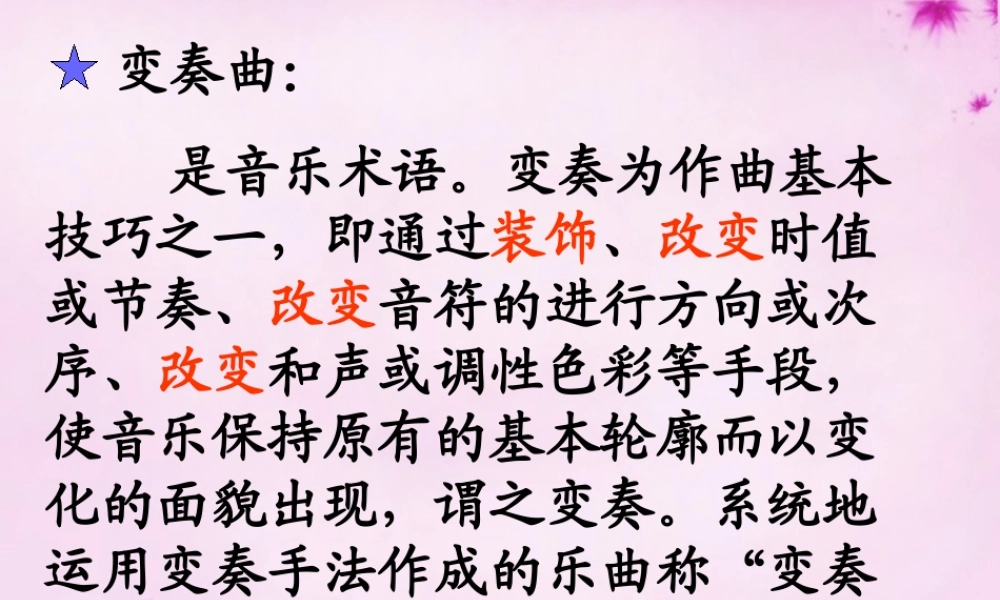 ★ 变奏曲：
是音乐术语。变奏为作曲基本
技巧之一，即通过装饰、改变时值
或节奏、改变音符的进行方向或次
序、改变和声或调性色彩等手段，
使音乐保持原有的基本轮廓而以变
化的面貌出现，谓之变奏。系统地
运用变奏手法作成的乐曲称“变奏